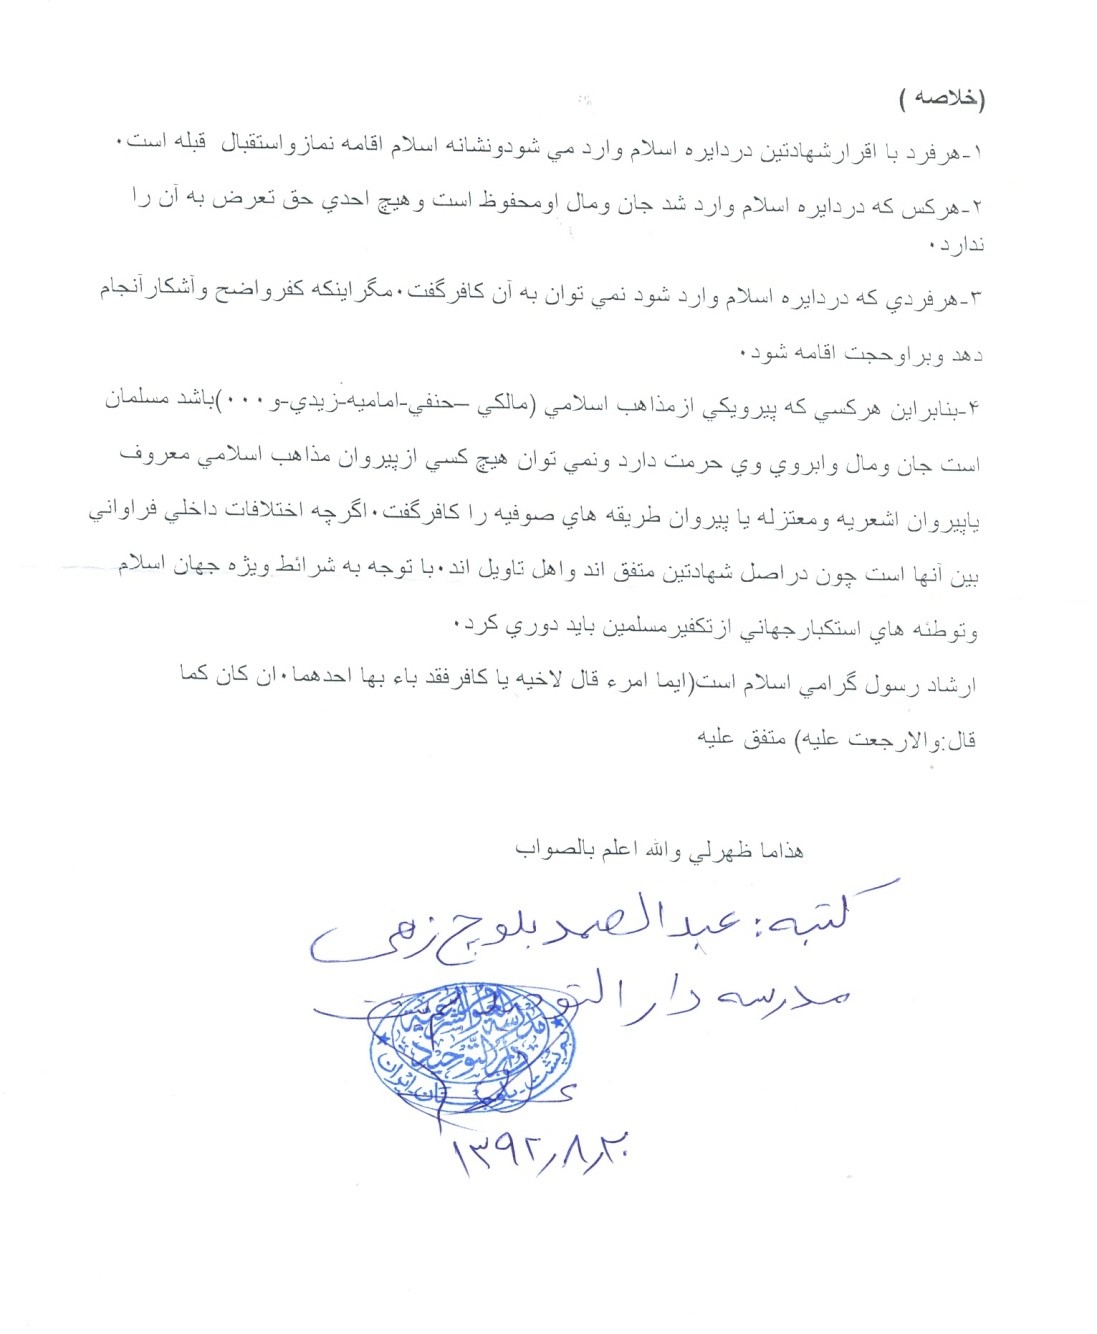 (خلاصه )
۱-هرفرد با اقرارشهادتین دردایره اسلام وارد مي شودونشانه اسلام اقامه نمازواستقبال قبله است۰
۲-هرکس که دردایره اسلام وارد شد جان ومال اومحفوظ است وهیچ احدي حق تعرض به آن را
ندارد۰
۳-هرفردي که دردایره اسلام وارد شود نمي توان به آن کافرگفت۰مگراینکه کفرواضح وآشکارآنجام
دهد وبراوحجت اقامه شود۰
۴-بنابراین هرکسي که پیرویکي ازمذاهب اسلامي (مالکي –حنفي-امامیه-زیدي-و۰۰۰)باشد مسلمان
است جان ومال وابروي وي حرمت دارد ونمي توان هیچ کسي ازپیروان مذاهب اسلامي معروف
یاپیروان اشعریه ومعتزله یا پیروان طریقه هاي صوفیه را کافرگفت۰اگرچه اختلافات داخلي فراواني
بین آنها است چون دراصل شهادتین متفق اند واهل تاویل اند۰با توجه به شرائط ویژه جهان اسلام
وتوطئه هاي استکبارجهاني ازتکفیرمسلمین باید دوري کرد۰
ارشاد رسول گرامي اسلام است(ایما امرء قال لاخیه یا کافرفقد باء بها احدهما۰ان کان کما
قال:والارجعت علیه) متفق علیه
هذاما ظهرلي والله اعلم بالصواب
کتبه: عبدالصمد بلوچ زهی
مدرسه دار التو
مدرسة العلوم الشرعية
دار التوحيد
بلوچستان ایران
۱۳۹۲٫۸٫۲۰